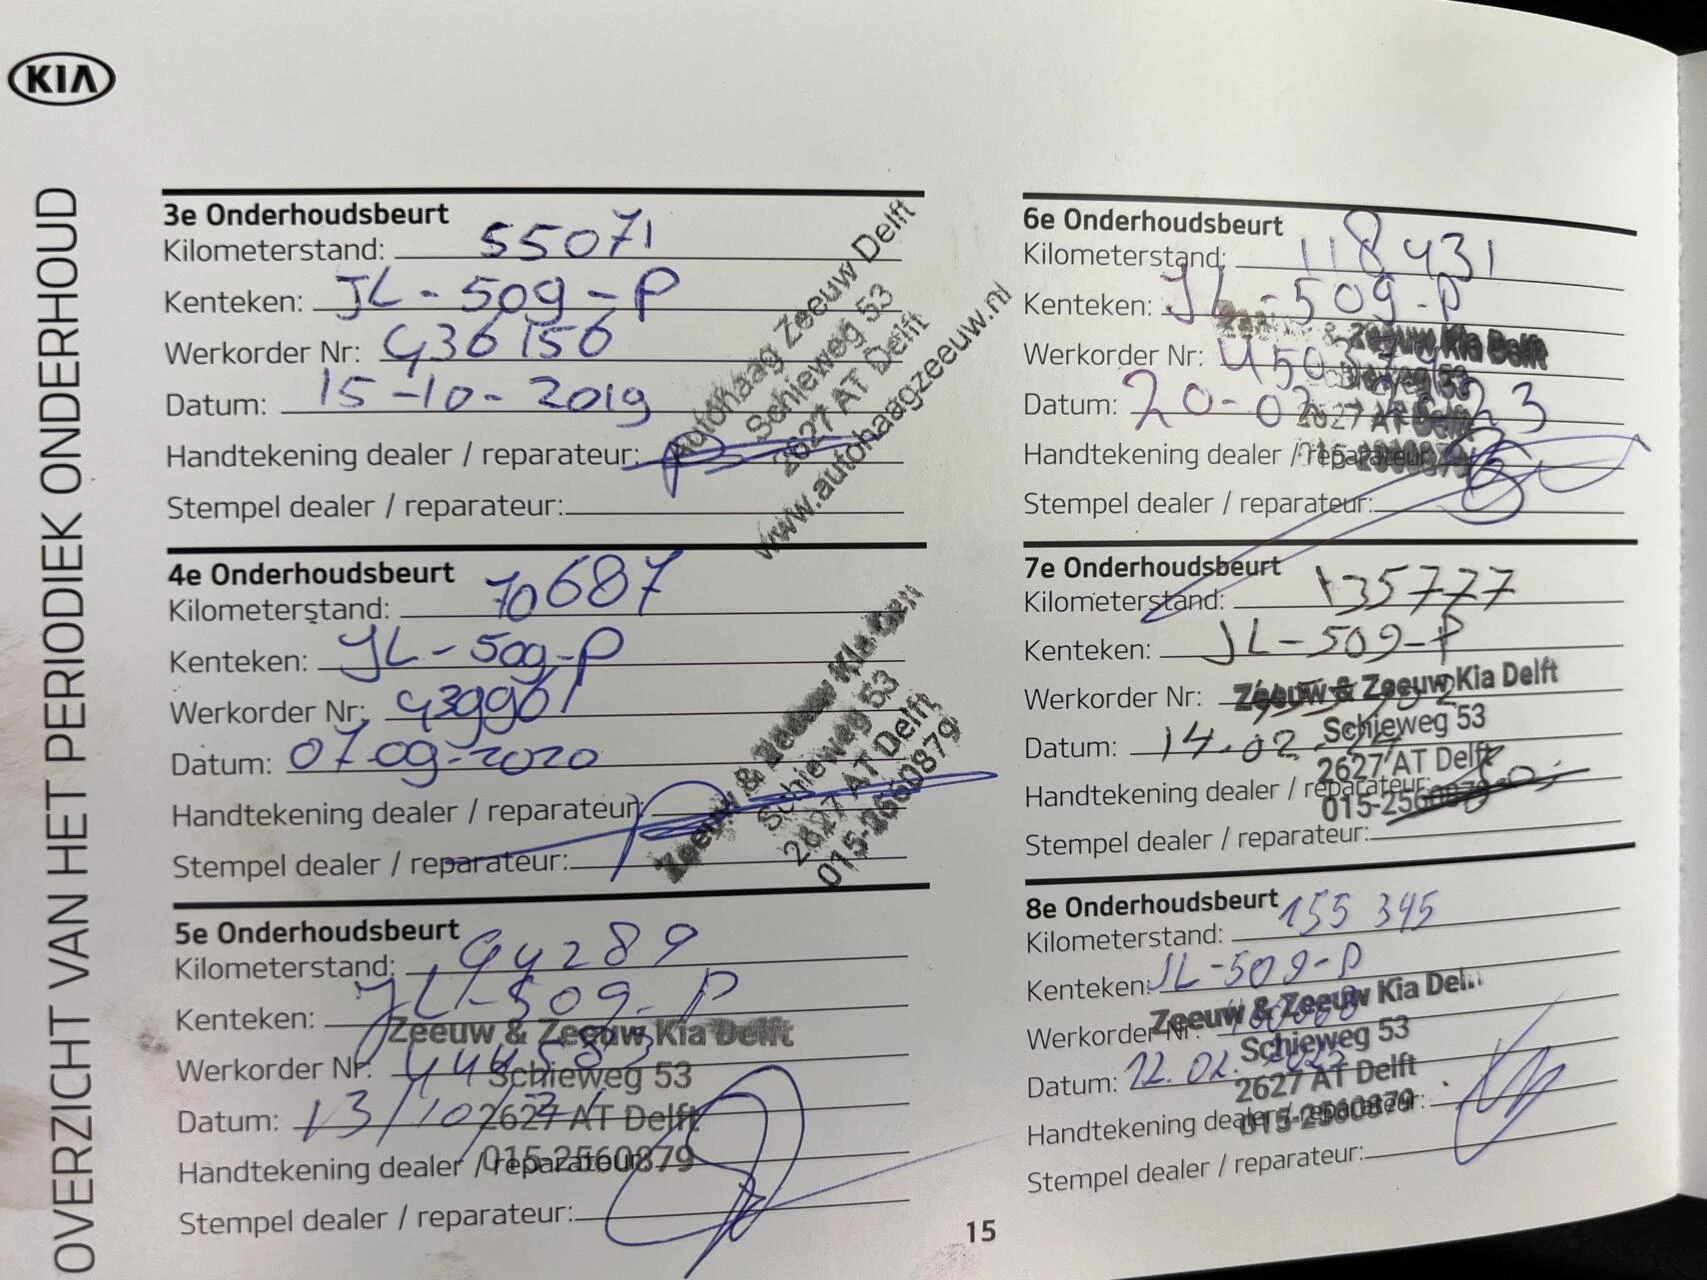 KIA
OVERZICHT VAN HET PERIODIEK ONDERHOUD
3e Onderhoudsbeurt
Kilometerstand: 55071
Kenteken: JL-509-P
Werkorder Nr: 436156
Datum: 15-10-2019
Handtekening dealer / reparateur:
Stempel dealer / reparateur:
Autohaag Zeeuw Delft
Schieweg 53
2627 AT Delft
www.autohaagzeeuw.nl
4e Onderhoudsbeurt
Kilometerstand: 70687
Kenteken: JL-509-P
Werkorder Nr: 439961
Datum: 07-09-2020
Handtekening dealer / reparateur:
Stempel dealer / reparateur:
Zeeuw & Zeeuw Kia
Schieweg 53
2627 AT Delft
015-2560879
5e Onderhoudsbeurt
Kilometerstand: 94289
Kenteken: JL-509-P
Werkorder Nr:
Datum: 13/10/21
Handtekening dealer / reparateur:
Stempel dealer / reparateur:
Zeeuw & Zeeuw Kia Delft
Schieweg 53
2627 AT Delft
015-2560879
6e Onderhoudsbeurt
Kilometerstand: 118431
Kenteken: JL-509-P
Werkorder Nr:
Datum:
Handtekening dealer / reparateur:
Stempel dealer / reparateur:
Zeeuw & Zeeuw Kia Delft
Schieweg 53
2627 AT Delft
015-2560879
7e Onderhoudsbeurt
Kilometerstand: 135777
Kenteken: JL-509-P
Werkorder Nr:
Datum: 14.02.
Handtekening dealer / reparateur:
Stempel dealer / reparateur:
Zeeuw & Zeeuw Kia Delft
Schieweg 53
2627 AT Delft
015-2560879
8e Onderhoudsbeurt
Kilometerstand: 155 345
Kenteken: JL-509-P
Werkorder Nr:
Datum: 12.02.
Handtekening dealer / reparateur:
Stempel dealer / reparateur:
Zeeuw & Zeeuw Kia Del
Schieweg 53
2627 AT Delft
015-2560879
15